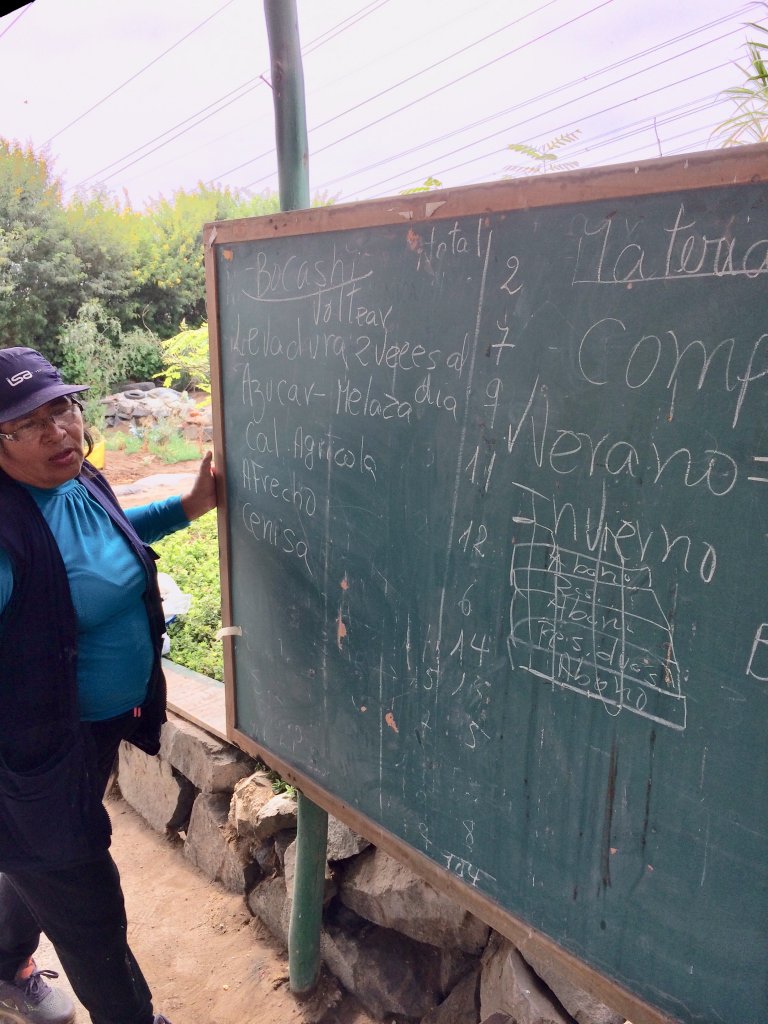 isa
-Bocashi
Voltear
Levadura 2 veces al
Azucar-Melaza dia
Cal Agricola
Afrecho
Cenisa
2
7
9
11
12
6
14
5
8
Materia
-Comp
Verano=
Invierno
Abono
Abono
Residuos
Abono